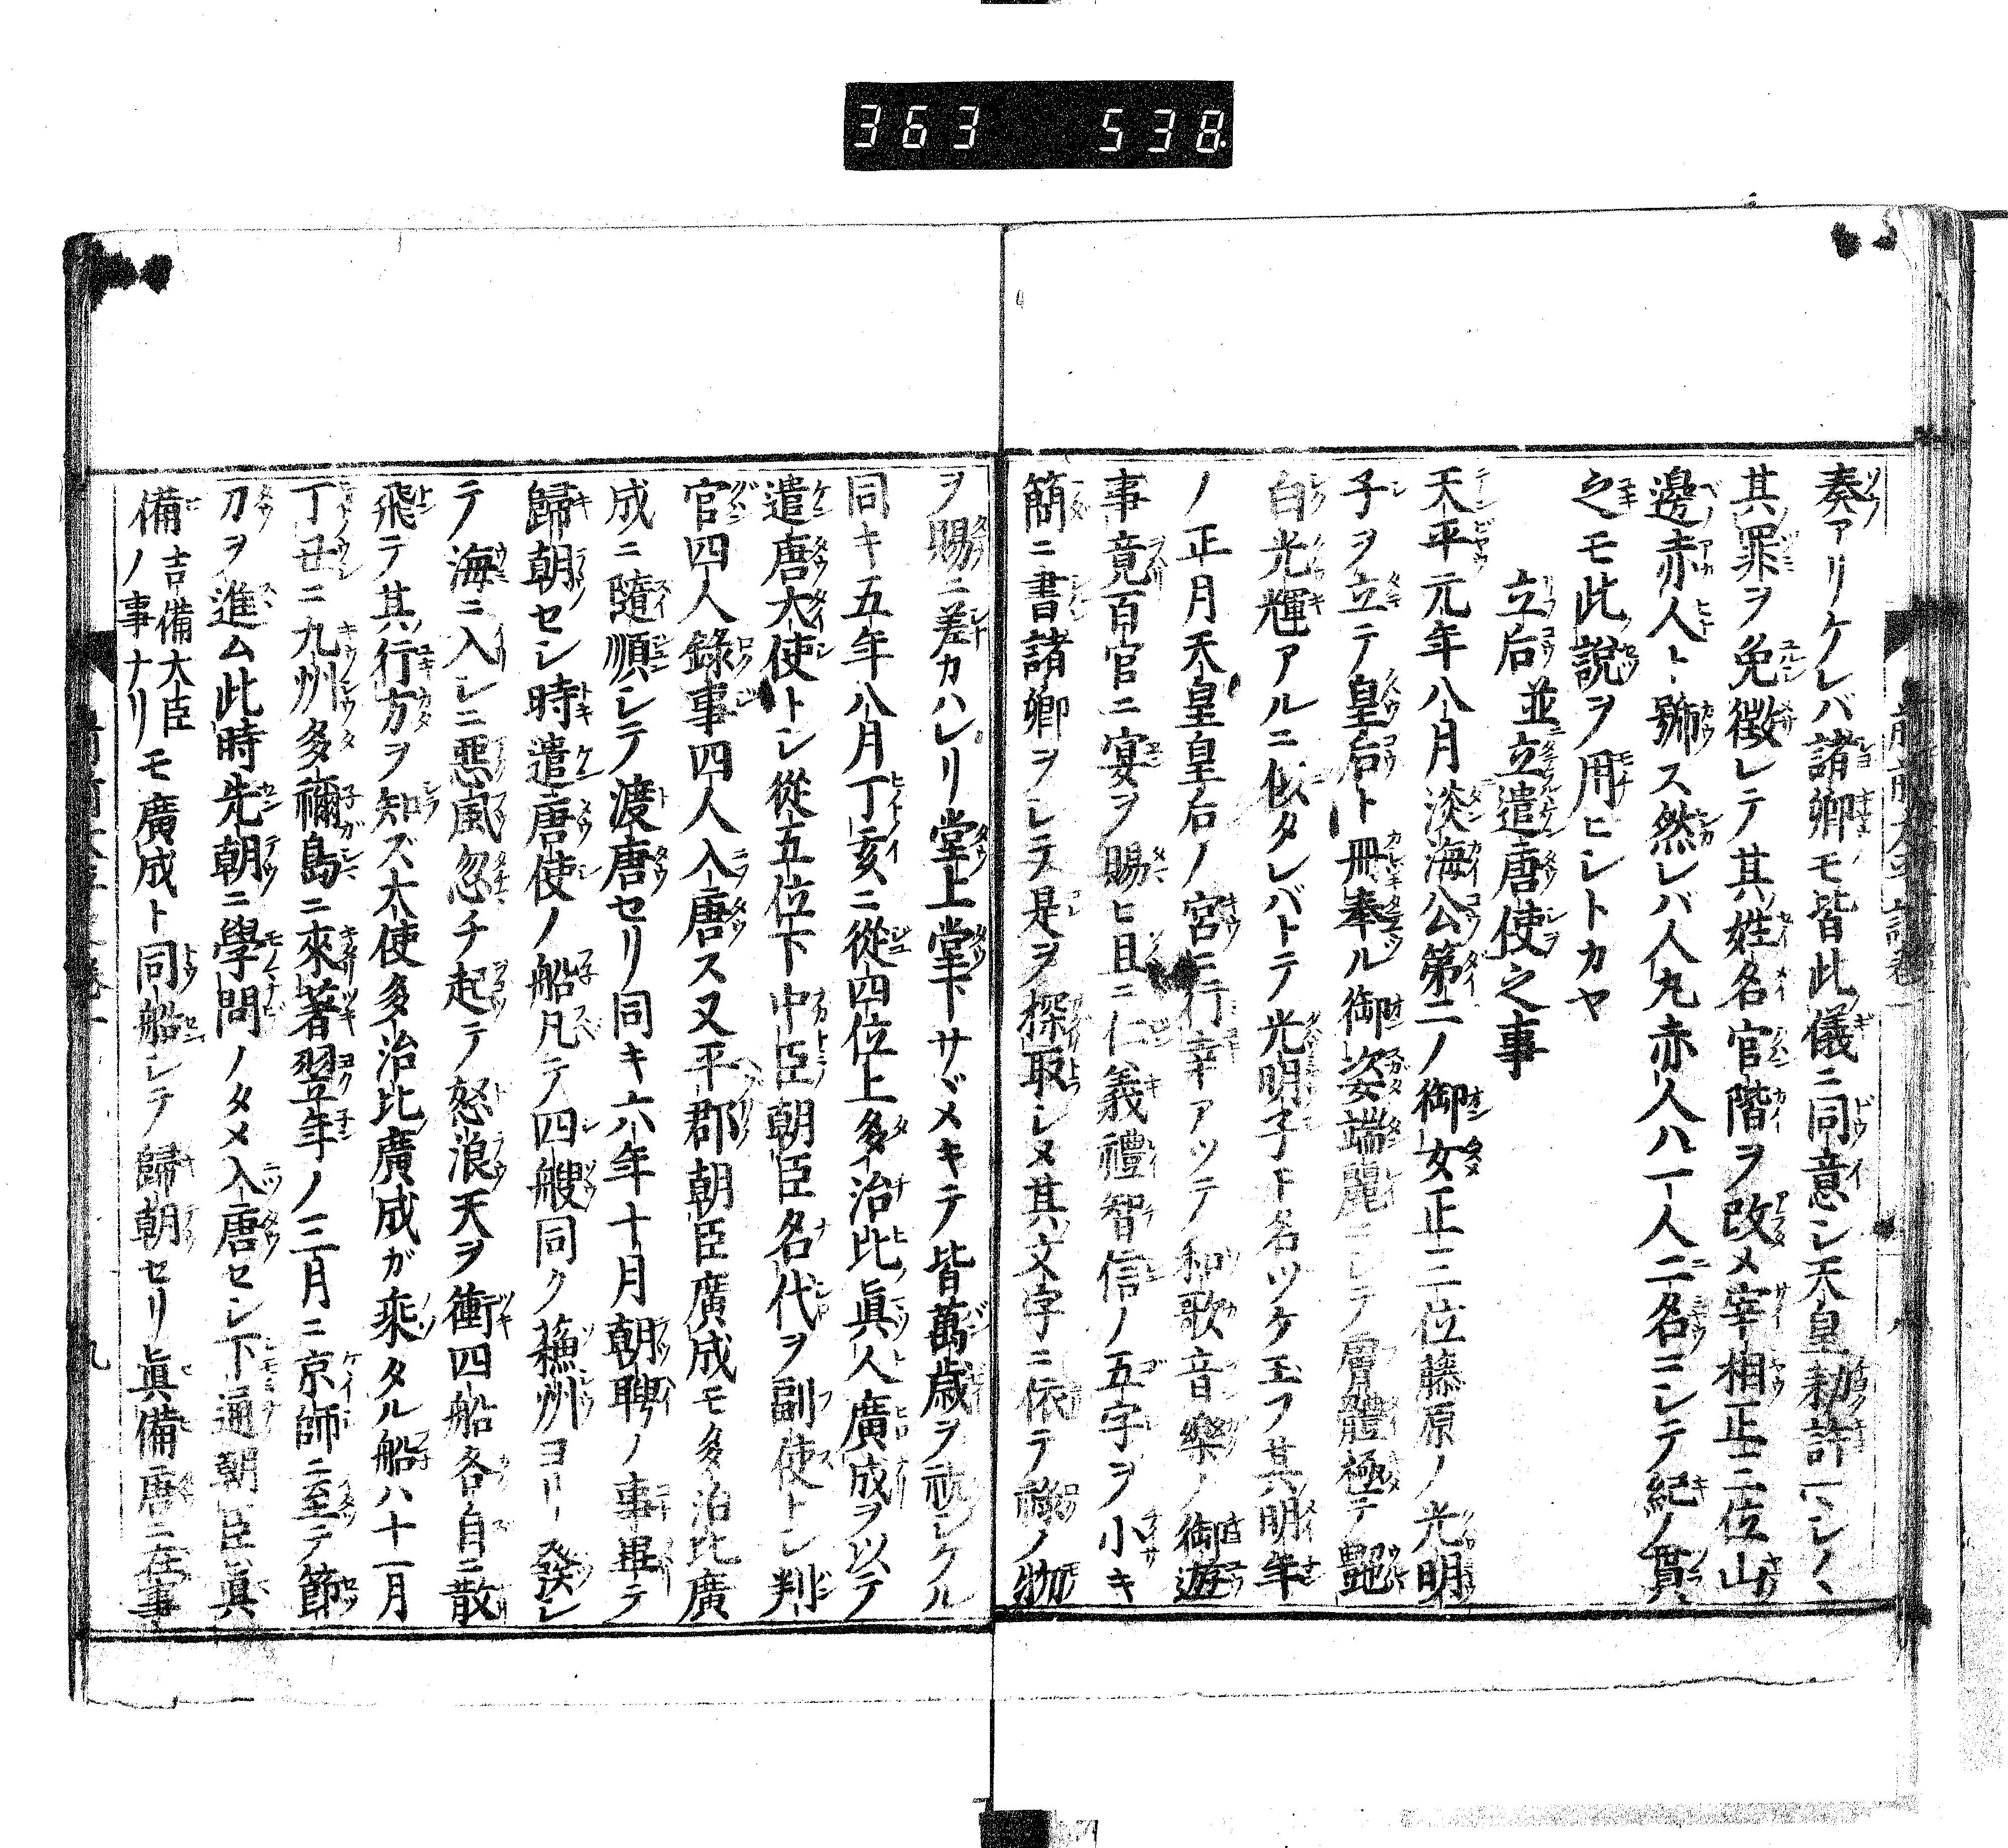 363 538
奏アリケレバ諸卿モ皆此儀ニ同意シ天皇勅許
其罪ヲ免徴シテ其姓名官階ヲ改メ宰相正三位山
邊赤人ト號ス然レバ人丸赤人ハ一人二名ニシテ紀ノ貫
之モ此說ヲ用ヒシトカヤ
立后並立遣唐使之事
天平元年八月淡海公第二ノ御女正三位藤原ノ光明
子ヲ立テ皇后ト冊奉ル御姿端麗ニシテ膚體極テ艷
白光輝アルニ似タレバトテ光明子ト名ツケ玉フ其明年
ノ正月天皇皇后ノ宮ニ行幸アツテ和歌音樂ノ御遊
事竟百官ニ宴ヲ賜ヒ且ニ仁義禮智信ノ五字ヲ小キ
簡ニ書諸卿ヲシテ是ヲ探取シメ其文字ニ依テ祿ノ物
ヲ賜ニ差カハレリ堂上堂下サヾメキテ皆萬歳ヲ祝シケル
同キ五年八月丁亥ニ從四位上多治比眞人廣成ヲ以テ
遣唐大使トシ從五位下中臣朝臣名代ヲ副使トシ判
官四人錄事四人入唐ス又平郡朝臣廣成モ多治比廣
成ニ隨順シテ渡唐セリ同キ六年十月朝聘ノ事畢テ
歸朝セシ時遣唐使ノ船凡テ四艘同ク蘓州ヨリ發シ
テ海ニ入シニ惡風忽チ起テ怒浪天ヲ衝四船各自ニ散
飛テ其行方ヲ知ズ大使多治比廣成ガ乘タル船ハ十一月
丁丑ニ九州多禰島ニ來著翌年ノ三月ニ京師ニ至テ節
刀ヲ進ム此時先朝ニ學問ノタメ入唐セシ下道朝臣眞
備吉備大臣ノ事ナリモ廣成ト同船シテ歸朝セリ眞備唐ニ在事
九